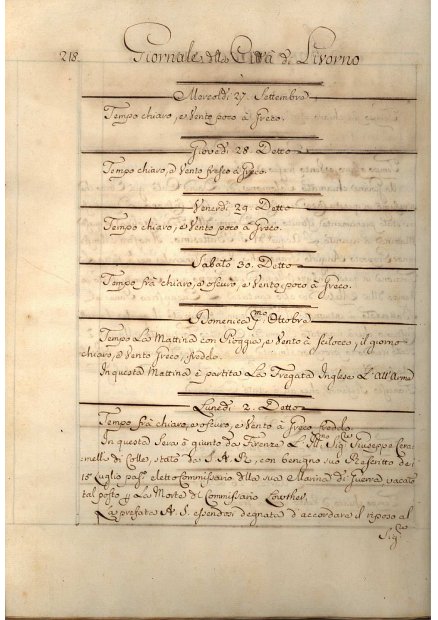 218 Giornale della Città di Livorno
Mercoldì 27. Settembre
Tempo chiaro, e Vento poco à Greco.
Giovedì 28. Detto
Tempo chiaro, e Vento fresco à Greco.
Venerdì 29. Detto
Tempo chiaro, e Vento poco à Greco.
Sabato 30. Detto
Tempo frà chiaro, e oscuro, e Vento poco à Greco.
Domenica pmo Ottobre
Tempo La Mattina con Pioggia, e Vento à Scilocco, il giorno
chiaro, e Vento Greco, freddo.
In questa Mattina è partita La Fregata Inglese L'
Lunedì 2. Detto
Tempo frà chiaro, e oscuro, e Vento à Greco freddo.
In questa Sera è giunto da Firenze L' Sig. Giuseppe Cera-
melli di Colle, stato da S. A. R., con benigno suo Rescritto dei
15 Luglio pass. eletto Commissario della sua Marina di Guerra vacato
tal posto p La Morte di Commissario Lowther.
La prefata A. S. essendosi degnata d'accordare il riposo al
Sig